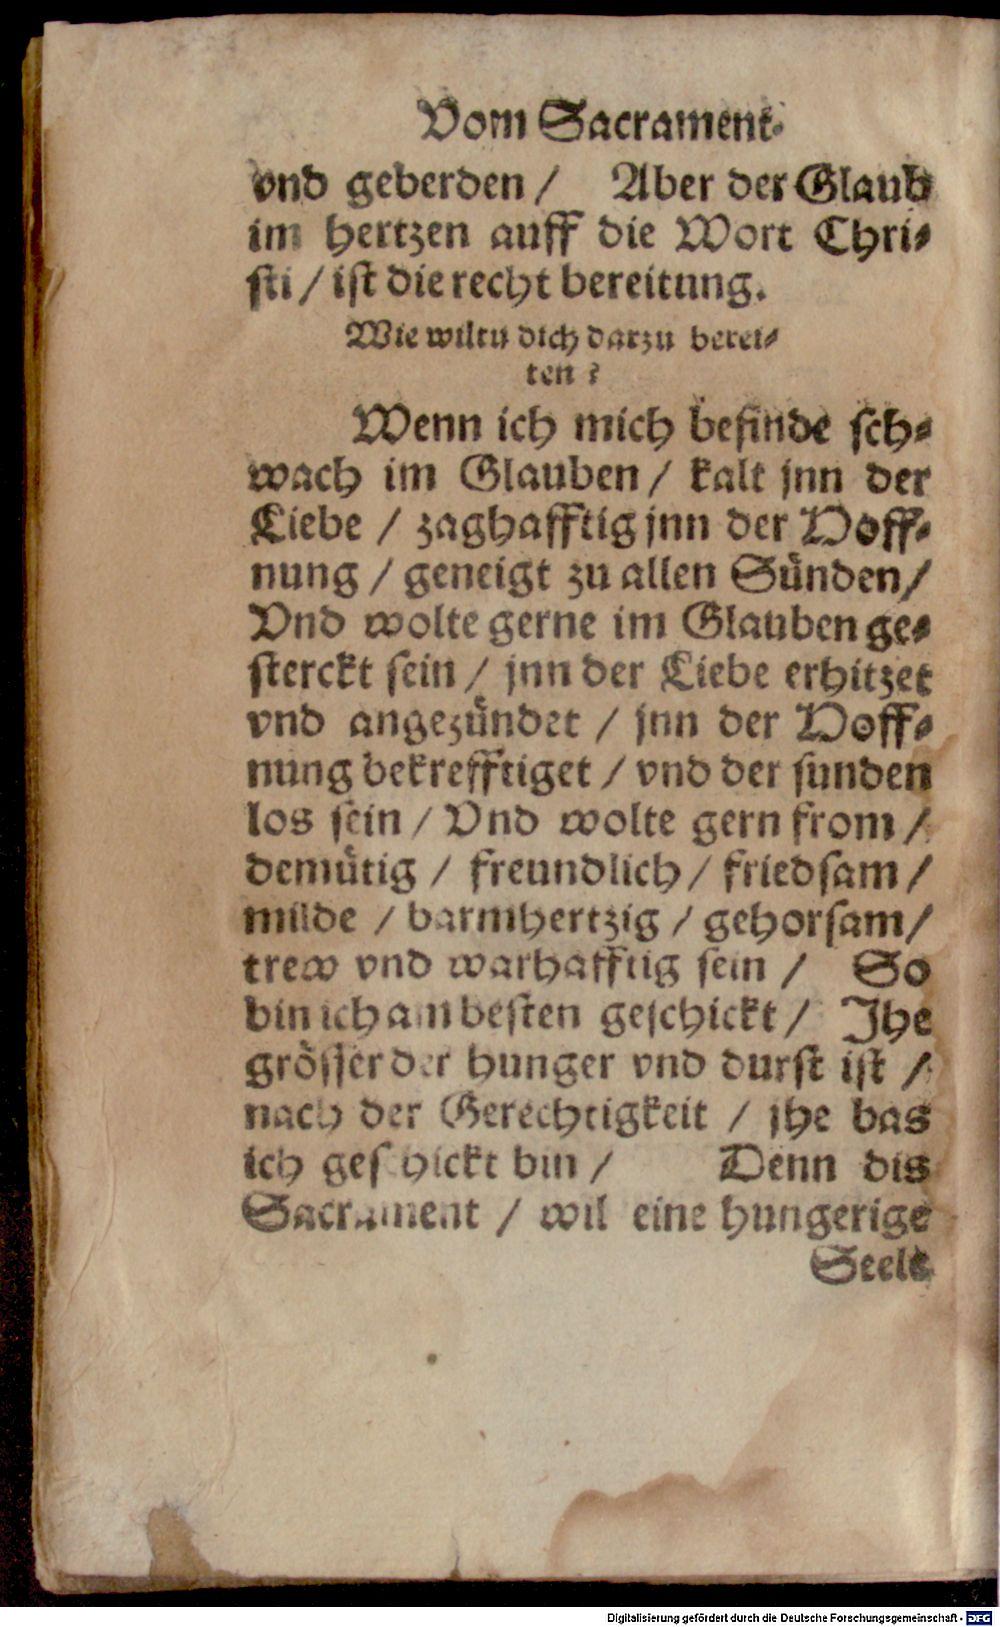 Vom Sacrament.
vnd geberden / Aber der Glaub
im hertzen auff die Wort Chri⸗
sti / ist die recht bereitung.
Wie wiltu dich darzu berei⸗
ten ?
Wenn ich mich befinde sch⸗
wach im Glauben / kalt jnn der
Liebe / zaghafftig jnn der Hoff⸗
nung / geneigt zu allen Sünden /
Vnd wolte gerne im Glauben ge⸗
sterckt sein / jnn der Liebe erhitzet
vnd angezündet / jnn der Hoff⸗
nung bekrefftiget / vnd der sunden
los sein / Vnd wolte gern from /
demütig / freundlich / friedsam /
milde / barmhertzig / gehorsam /
trew vnd warhafftig sein / So
bin ich am besten geschickt / Jhe
grösser der hunger vnd durst ist /
nach der Gerechtigkeit / jhe bas
ich geschickt bin / Denn dis
Sacrament / wil eine hungerige
Seele
Digitalisierung gefördert durch die Deutsche Forschungsgemeinschaft - DFG